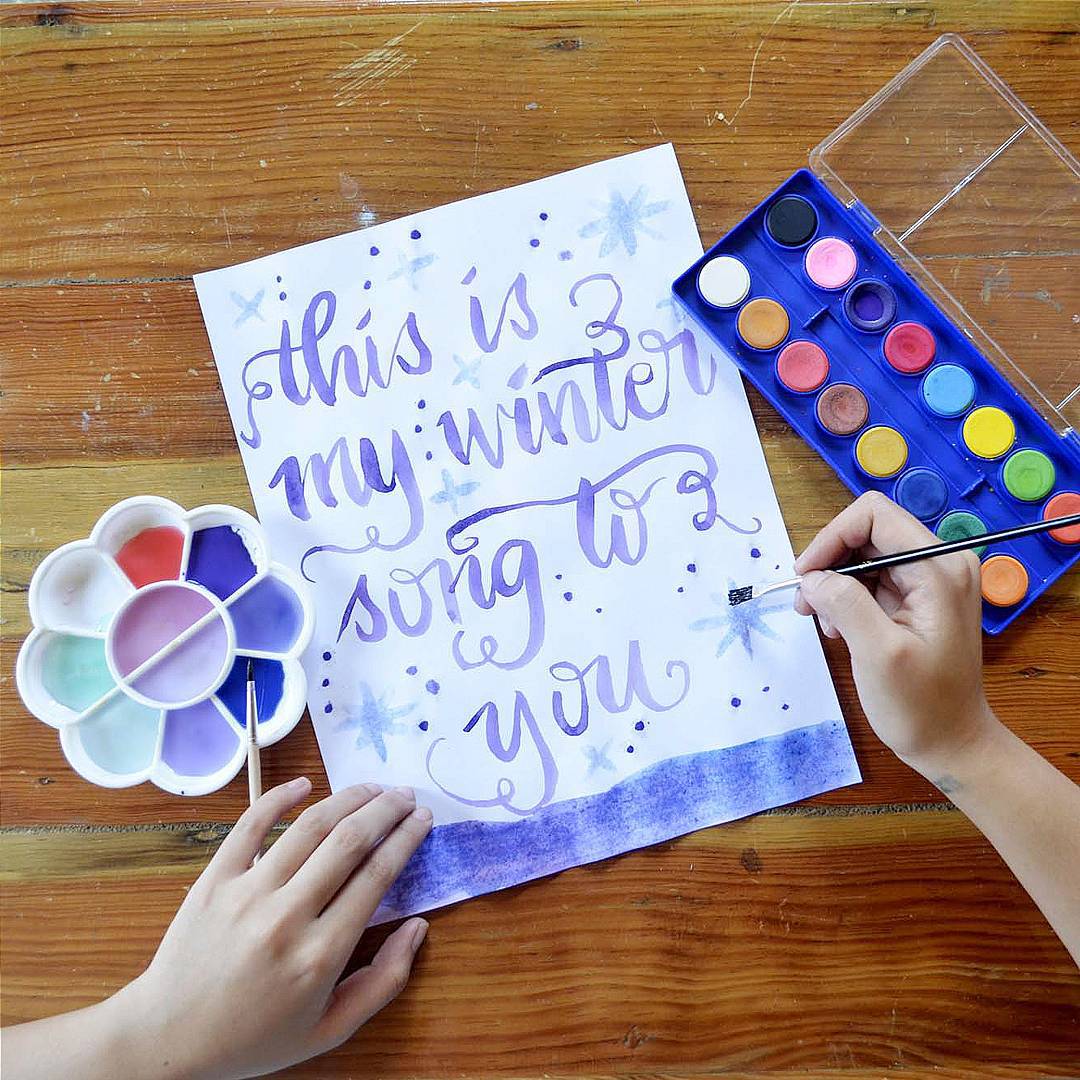 this is
my winter
song to
you